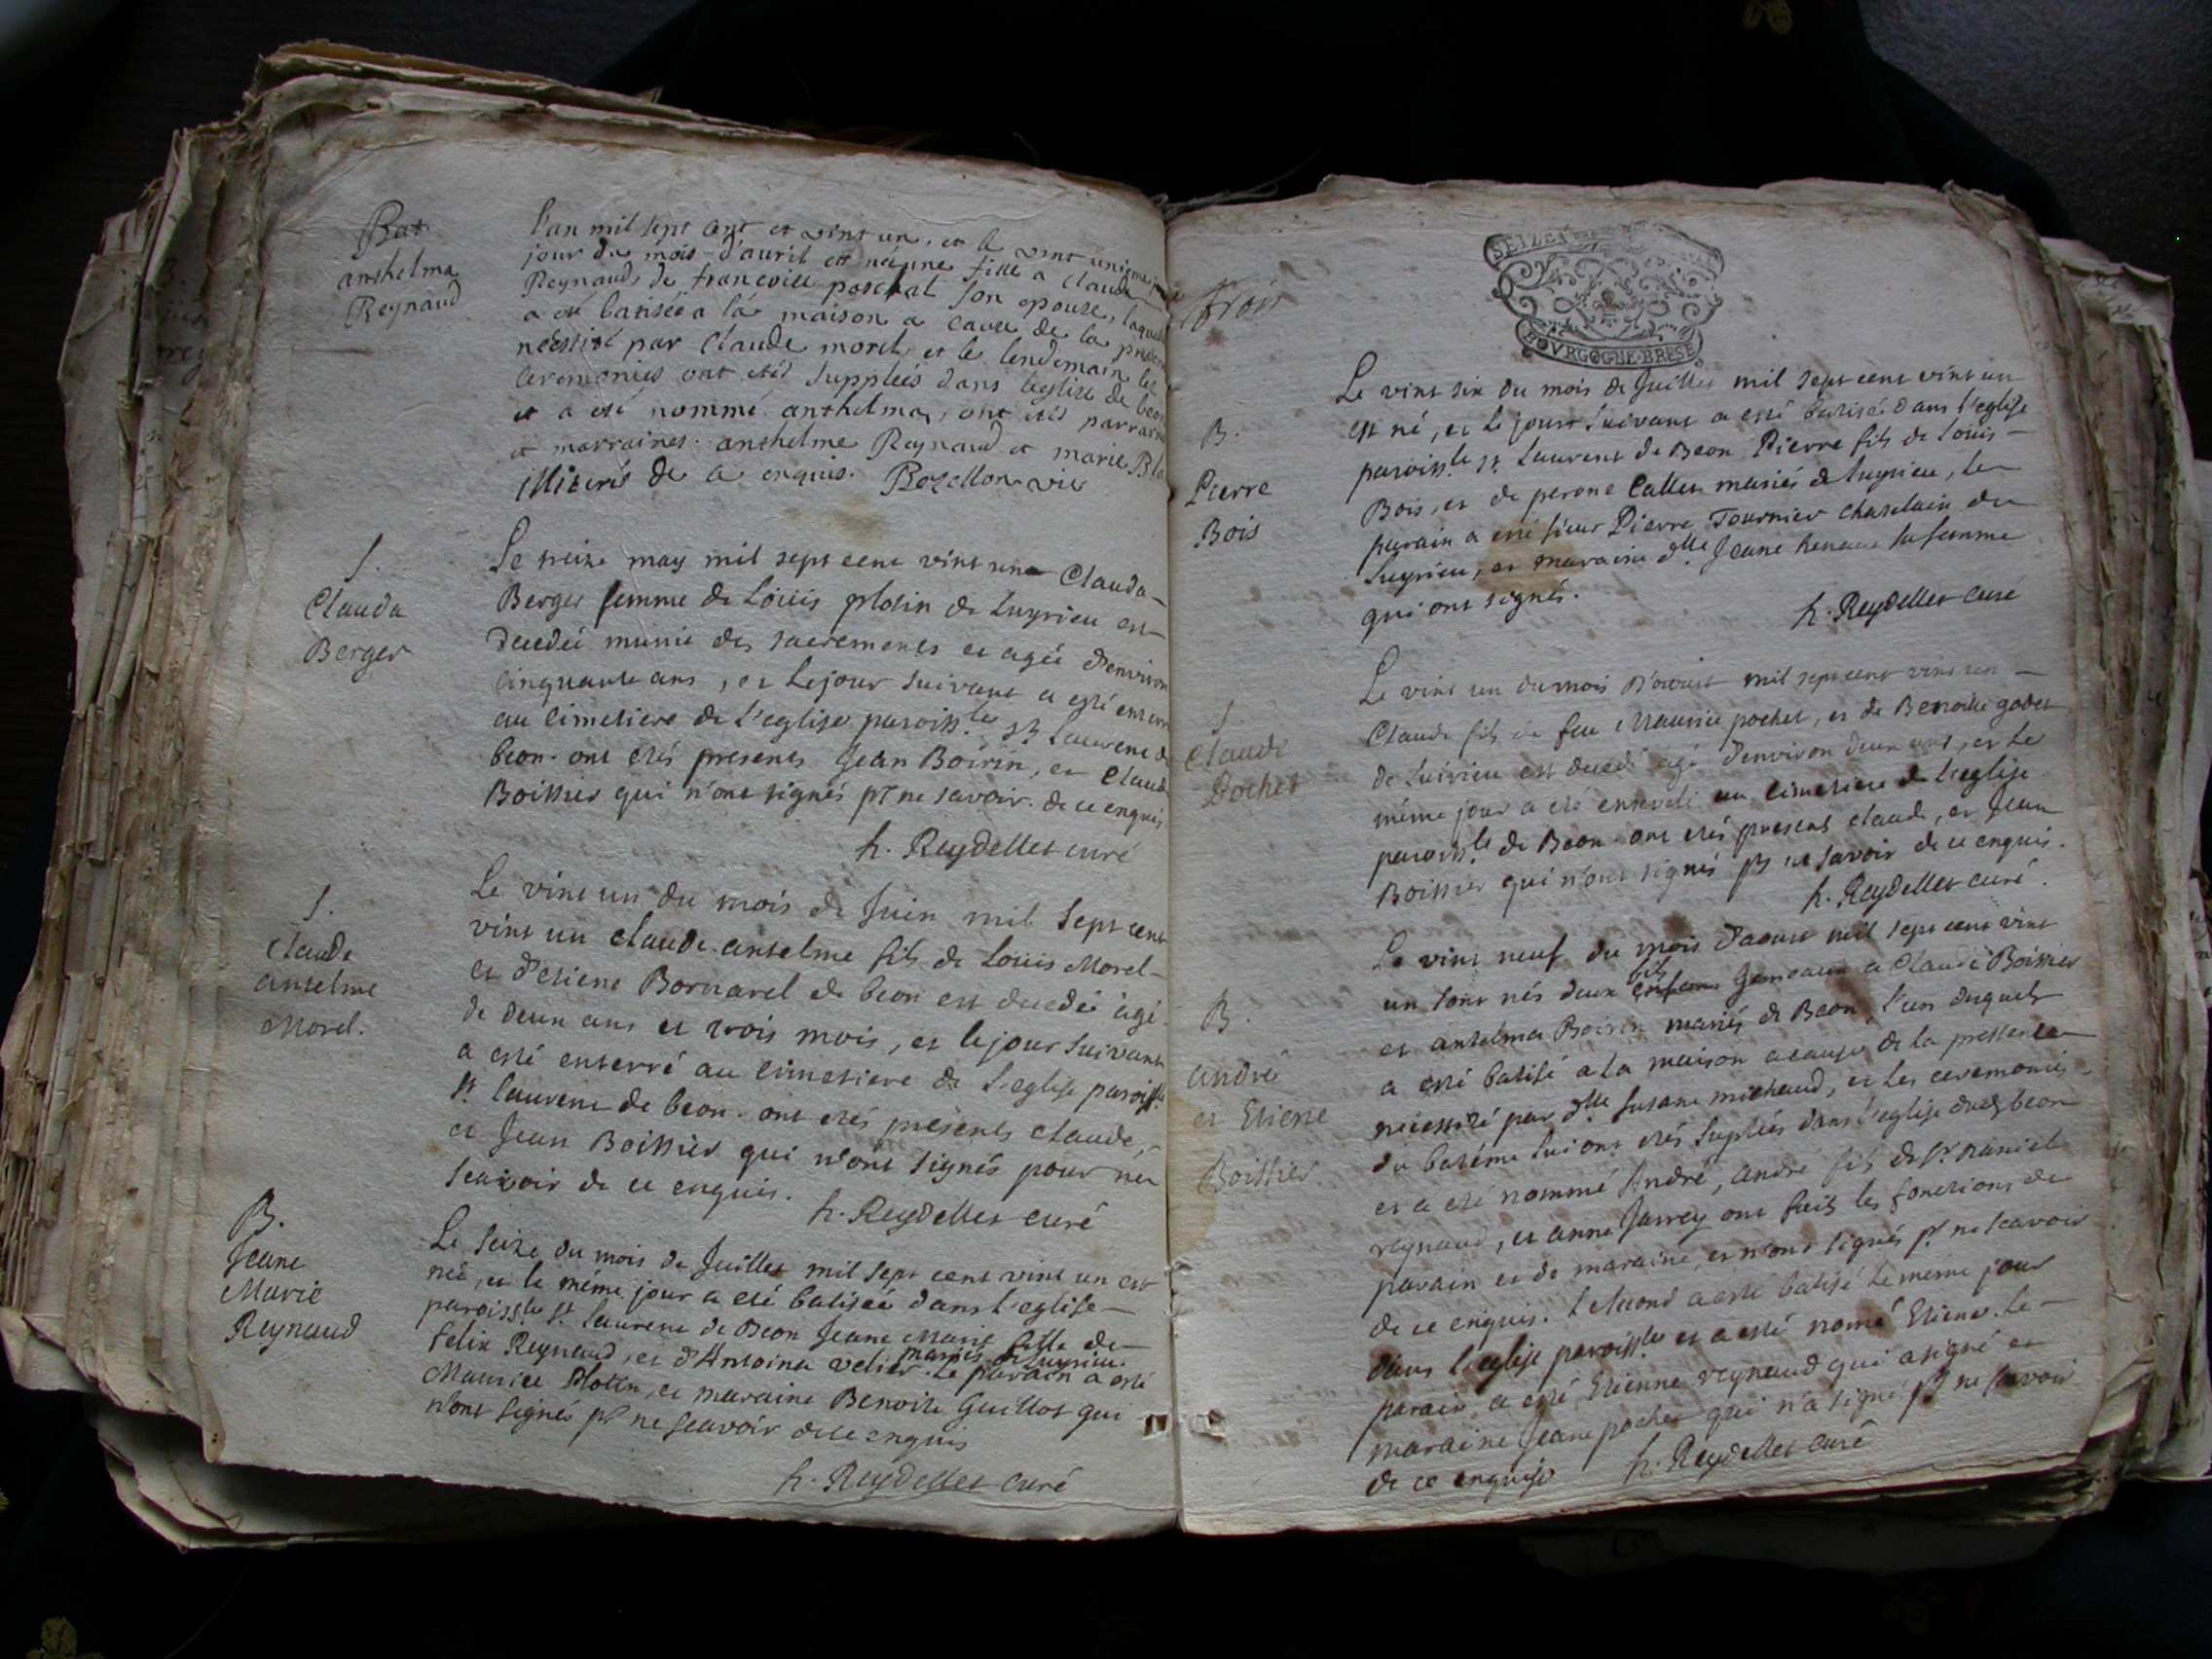 Bat.
anthelma
Reynaud
l'an mil sept cent et vint un, et le vint unieme
jour du mois d'auril est née une fille a Claude
Reynaud, de francoise paschal son epouse, laquelle
a esté batisée a la maison a cause de la
necessité par Claude morel et le lendemain les
ceremonies ont etés suppleés dans l'eglise de beon
et a été nommé anthelma, ont etés parrains
et marraines anthelme Reynaud et marie
illiterés de ce enquis. Bozellon vic
S.
Clauda
Berger
Le treize may mil sept cent vint une Clauda
Berger femme de Loüis plotin de Luyrieu est
decedée munie des sacrements et agée d'environ
cinquante ans, et le jour suivant a esté
au cimetiere de l'eglise paroiss.le St Laurent de
beon. ont etés presents Jean Boirin, et Claude
Boissier qui n'ont signés pr ne savoir. de ce enquis
h. Reydellet curé
S.
Claude
anselme
Morel.
Le vint un du mois de Juin mil sept cent
vint un Claude anselme fils de Loüis Morel
et d'etiene Bornarel de beon est decedé agé
de deux ans et trois mois, et le jour suivant
a esté enterré au cimetiere de l'eglise paroissle
St. laurent de beon. ont etés presents claude,
et Jean Boissier qui n'ont signés pour ne
scavoir de ce enquis.
h. Reydellet curé
B.
Jeane
Marie
Reynaud
Le seize du mois de Juillet mil sept cent vint un est
née, et le même jour a eté batisée dans l'eglise
paroiss.le St. laurent de Beon Jeane Marie fille de
felix Reynaud, et d'Antoina velier mariés de Luyrieu. Le parain a esté
Maurice Plottin, et maraine Benoite Guillot qui
n'ont signés pr ne scavoir de ce enquis
h. Reydellet curé
trois
SEIZE
BOVRGOGNE·BRESSE
B.
Pierre
Bois
Le vint six du mois de Juillet mil sept cent vint un
est né, et le jour suivant a esté batisé dans l'eglise
paroiss.le St. Laurent de Beon Pierre fils de Loüis
Bois, et de perone Callet mariés de luyrieu, le
parain a esté sieur Pierre Tournier chatelain du
Luyrieu, et maraine dlle Jeane sa femme
qui ont signés.
h. Reydellet curé
S.
Claude
Pochet
Le vint un du mois D'aoust mil sept cent vint un
Claude fils de feu Maurice pochet, et de Benoite godet
de Luirieu est decedé agé d'environ deux ans, et le
même jour a eté enseveli au cimetiere de l'eglise
paroiss.le de Beon. ont etés presens claude, et Jean
Boissier qui n'ont signés pr ne savoir de ce enquis.
h. Reydellet curé.
B.
André
et Etiene
Boissier.
Le vint neuf du mois d'aoust mil sept cent vint
un sont nés deux fils Gemeaux a Claude Boissier
et antelma Boirin mariés de Beon, l'un desquels
a esté batisé a la maison a cause de la pressente
necessité par dlle susane michaud, et les ceremonies
du batême lui ont etés supleés dans l'eglise dudt beon
et a eté nommé André, André fils de Sr. Daniel
reynaud, et anne Jarrey ont faits les fonctions de
parain et de maraine, et n'ont signés pr ne scavoir
de ce enquis. l second a esté batisé le même jour
dans l'eglise paroissle et a esté nomé Etiene. le
parain a esté Etienne reynaud qui a signé et
maraine Jeane pochet qui n'a signé pr ne scavoir
de ce enquise h. Reydellet curé